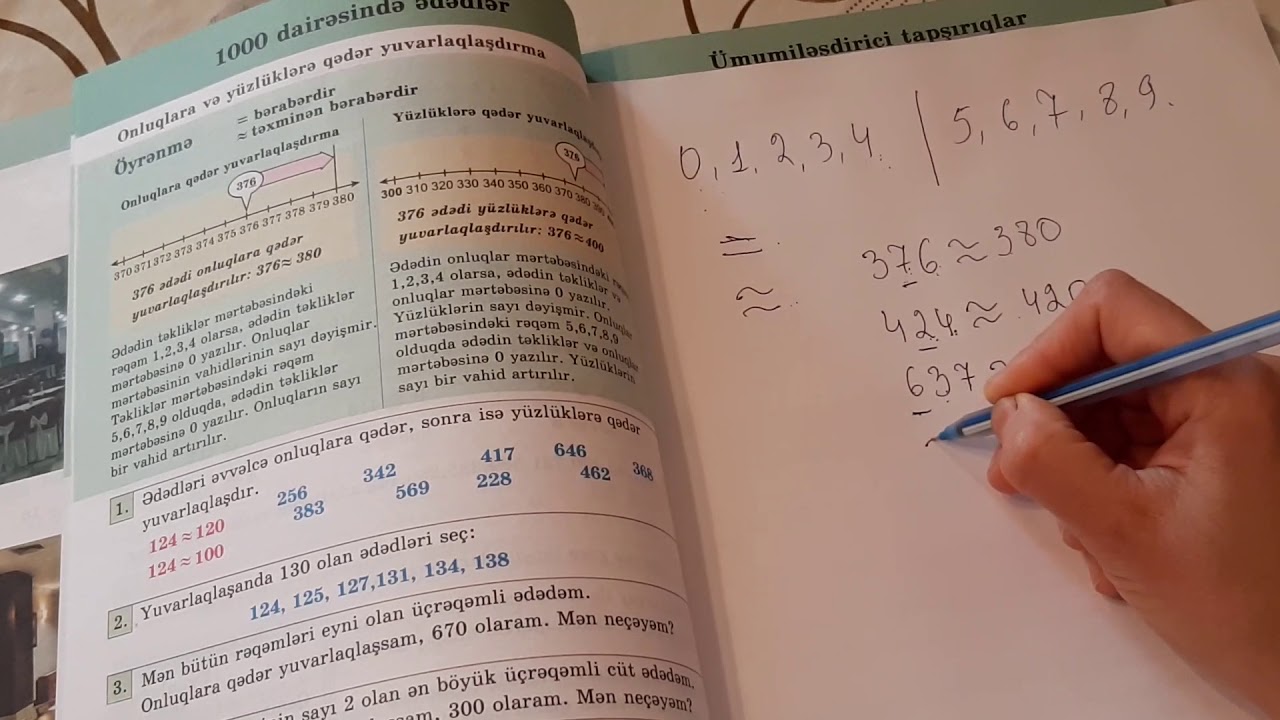 1000 dairəsində ədədlər
Onluqlara və yüzlüklərə qədər yuvarlaqlaşdırma
Öyrənmə
= bərabərdir
≈ təxminən bərabərdir
Onluqlara qədər yuvarlaqlaşdırma
376
370 371 372 373 374 375 376 377 378 379 380
376 ədədi onluqlara qədər
yuvarlaqlaşdırılır: 376≈ 380
Ədədin təkliklər mərtəbəsindəki
rəqəm 1,2,3,4 olarsa, ədədin təkliklər
mərtəbəsinə 0 yazılır. Onluqlar
mərtəbəsinin vahidlərinin sayı dəyişmir.
Təkliklər mərtəbəsindəki rəqəm
5,6,7,8,9 olduqda, ədədin təkliklər
mərtəbəsinə 0 yazılır. Onluqların sayı
bir vahid artırılır.
Yüzlüklərə qədər
376
300 310 320 330 340 350 360 370 380
376 ədədi yüzlüklərə qədər
yuvarlaqlaşdırılır: 376≈400
Ədədin onluqlar mərtəbəsindəki
1,2,3,4 olarsa, ədədin təkliklər
onluqlar mərtəbəsinə 0 yazılır.
Yüzlüklərin sayı dəyişmir.
mərtəbəsindəki rəqəm 5,6,7,8,9
olduqda ədədin təkliklər və
mərtəbəsinə 0 yazılır. Yüzlüklərin
sayı bir vahid artırılır.
1. Ədədləri əvvəlcə onluqlara qədər, sonra isə yüzlüklərə qədər
yuvarlaqlaşdır.
256 342 417 646 368
383 569 228 462
124 ≈ 120
124 ≈ 100
2. Yuvarlaqlaşanda 130 olan ədədləri seç:
124, 125, 127,131, 134, 138
3. Mən bütün rəqəmləri eyni olan üçrəqəmli ədədəm.
Onluqlara qədər yuvarlaqlaşsam, 670 olaram. Mən neçəyəm?
sayı 2 olan ən böyük üçrəqəmli cüt ədədəm.
300 olaram. Mən neçəyəm?
Ümumiləşdirici tapşırıqlar
0, 1, 2, 3, 4. | 5, 6, 7, 8, 9.
=
≈
376 ≈ 380
424 ≈ 420
637